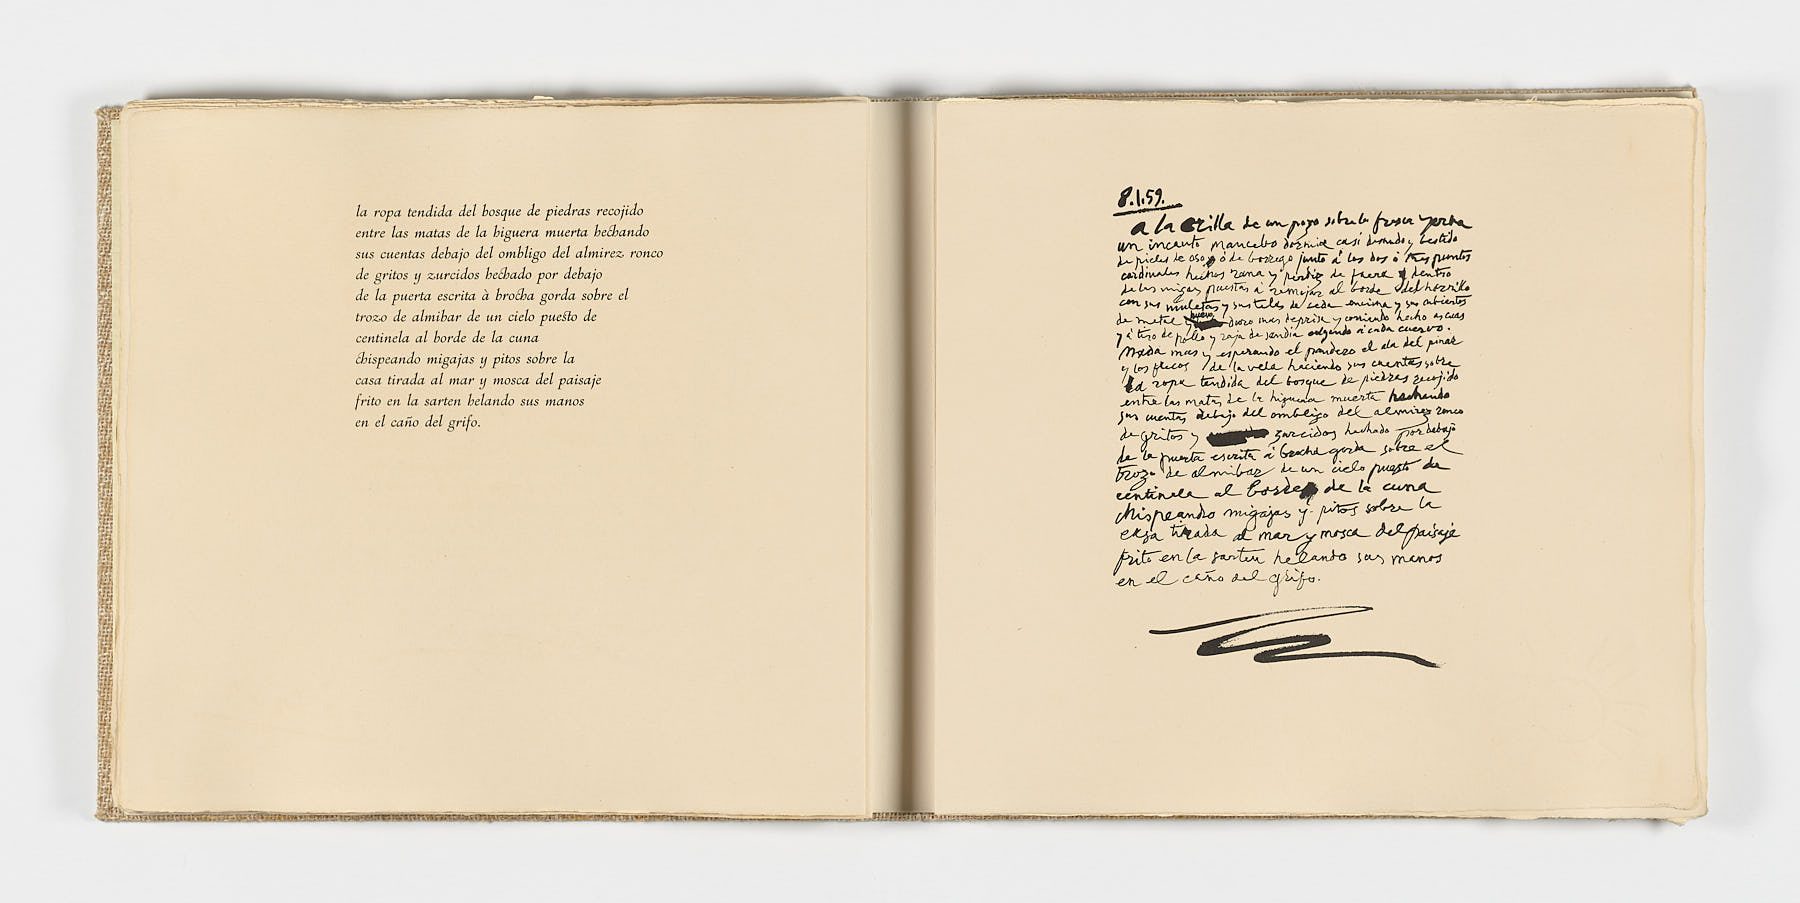 la ropa tendida del bosque de piedras recojido
entre las matas de la higuera muerta hechando
sus cuentas debajo del ombligo del almirez ronco
de gritos y zurcidos hechado por debajo
de la puerta escrita à brocha gorda sobre el
trozo de almibar de un cielo puesto de
centinela al borde de la cuna
chispeando migajas y pitos sobre la
casa tirada al mar y mosca del paisaje
frito en la sarten helando sus manos
en el caño del grifo.
8.1.59.
a la orilla de un pozo sobre la fresca yerba
un incauto mancebo dormia casi desnudo y bestido
de pieles de oso ó de borrego junto á los dos ó tres puntos
cardinales hechos rana y perdiz de fuera y dentro
de las migas puestas á remojar al borde del hornillo
con sus muletas y sus telas de ceda encima y sus cubiertos
de metal y huevo duro mas deprisa y corriendo hecho ascuas
y á tiro de pollo y raja de sandia colgando á cada cuerno.
Nada mas y esperando el pandero el ala del pinar
y los flecos de la vela haciendo sus cuentas sobre
la ropa tendida del bosque de piedras recojido
entre las matas de la higuera muerta hechando
sus cuentas debajo del ombligo del almirez ronco
de gritos y zurcidos hechado por debajo
de la puerta escrita á brocha gorda sobre el
trozo de almibar de un cielo puesto de
centinela al borde de la cuna
chispeando migajas y pitos sobre la
casa tirada al mar y mosca del paisaje
frito en la sarten helando sus manos
en el caño del grifo.